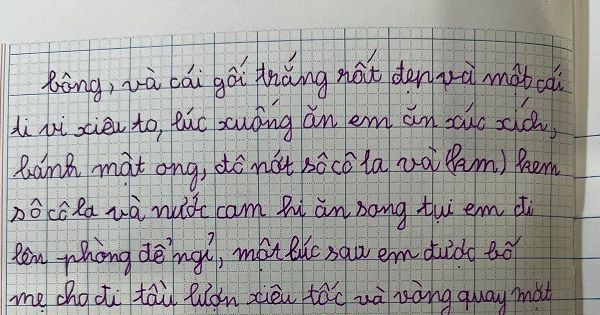 bông, và cái gối trắng rất đẹn và một cái
ti vi xiêu to, lúc xuống ăn em ăn xúc xích,
bánh mật ong, đô nát sôcôla và (kam) kem
sôcôla và nước cam khi ăn song tụi em đi
lên phòng để ngỉ, một lúc sau em được bố
mẹ cho đi tầu lượn xiêu tốc và vàng quay mặt